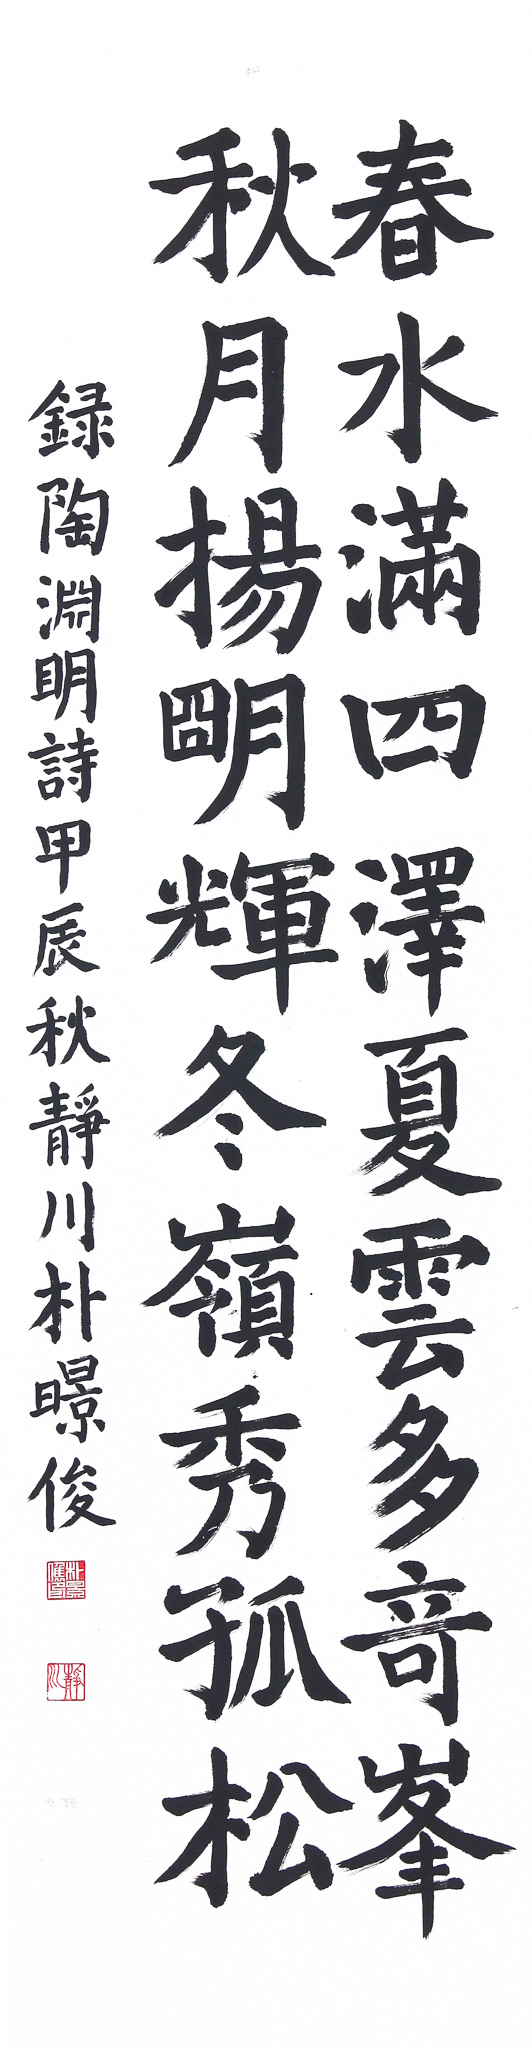 春水滿四澤夏雲多奇峯
秋月揚明輝冬嶺秀孤松
録陶淵明詩甲辰秋靜川朴暻俊